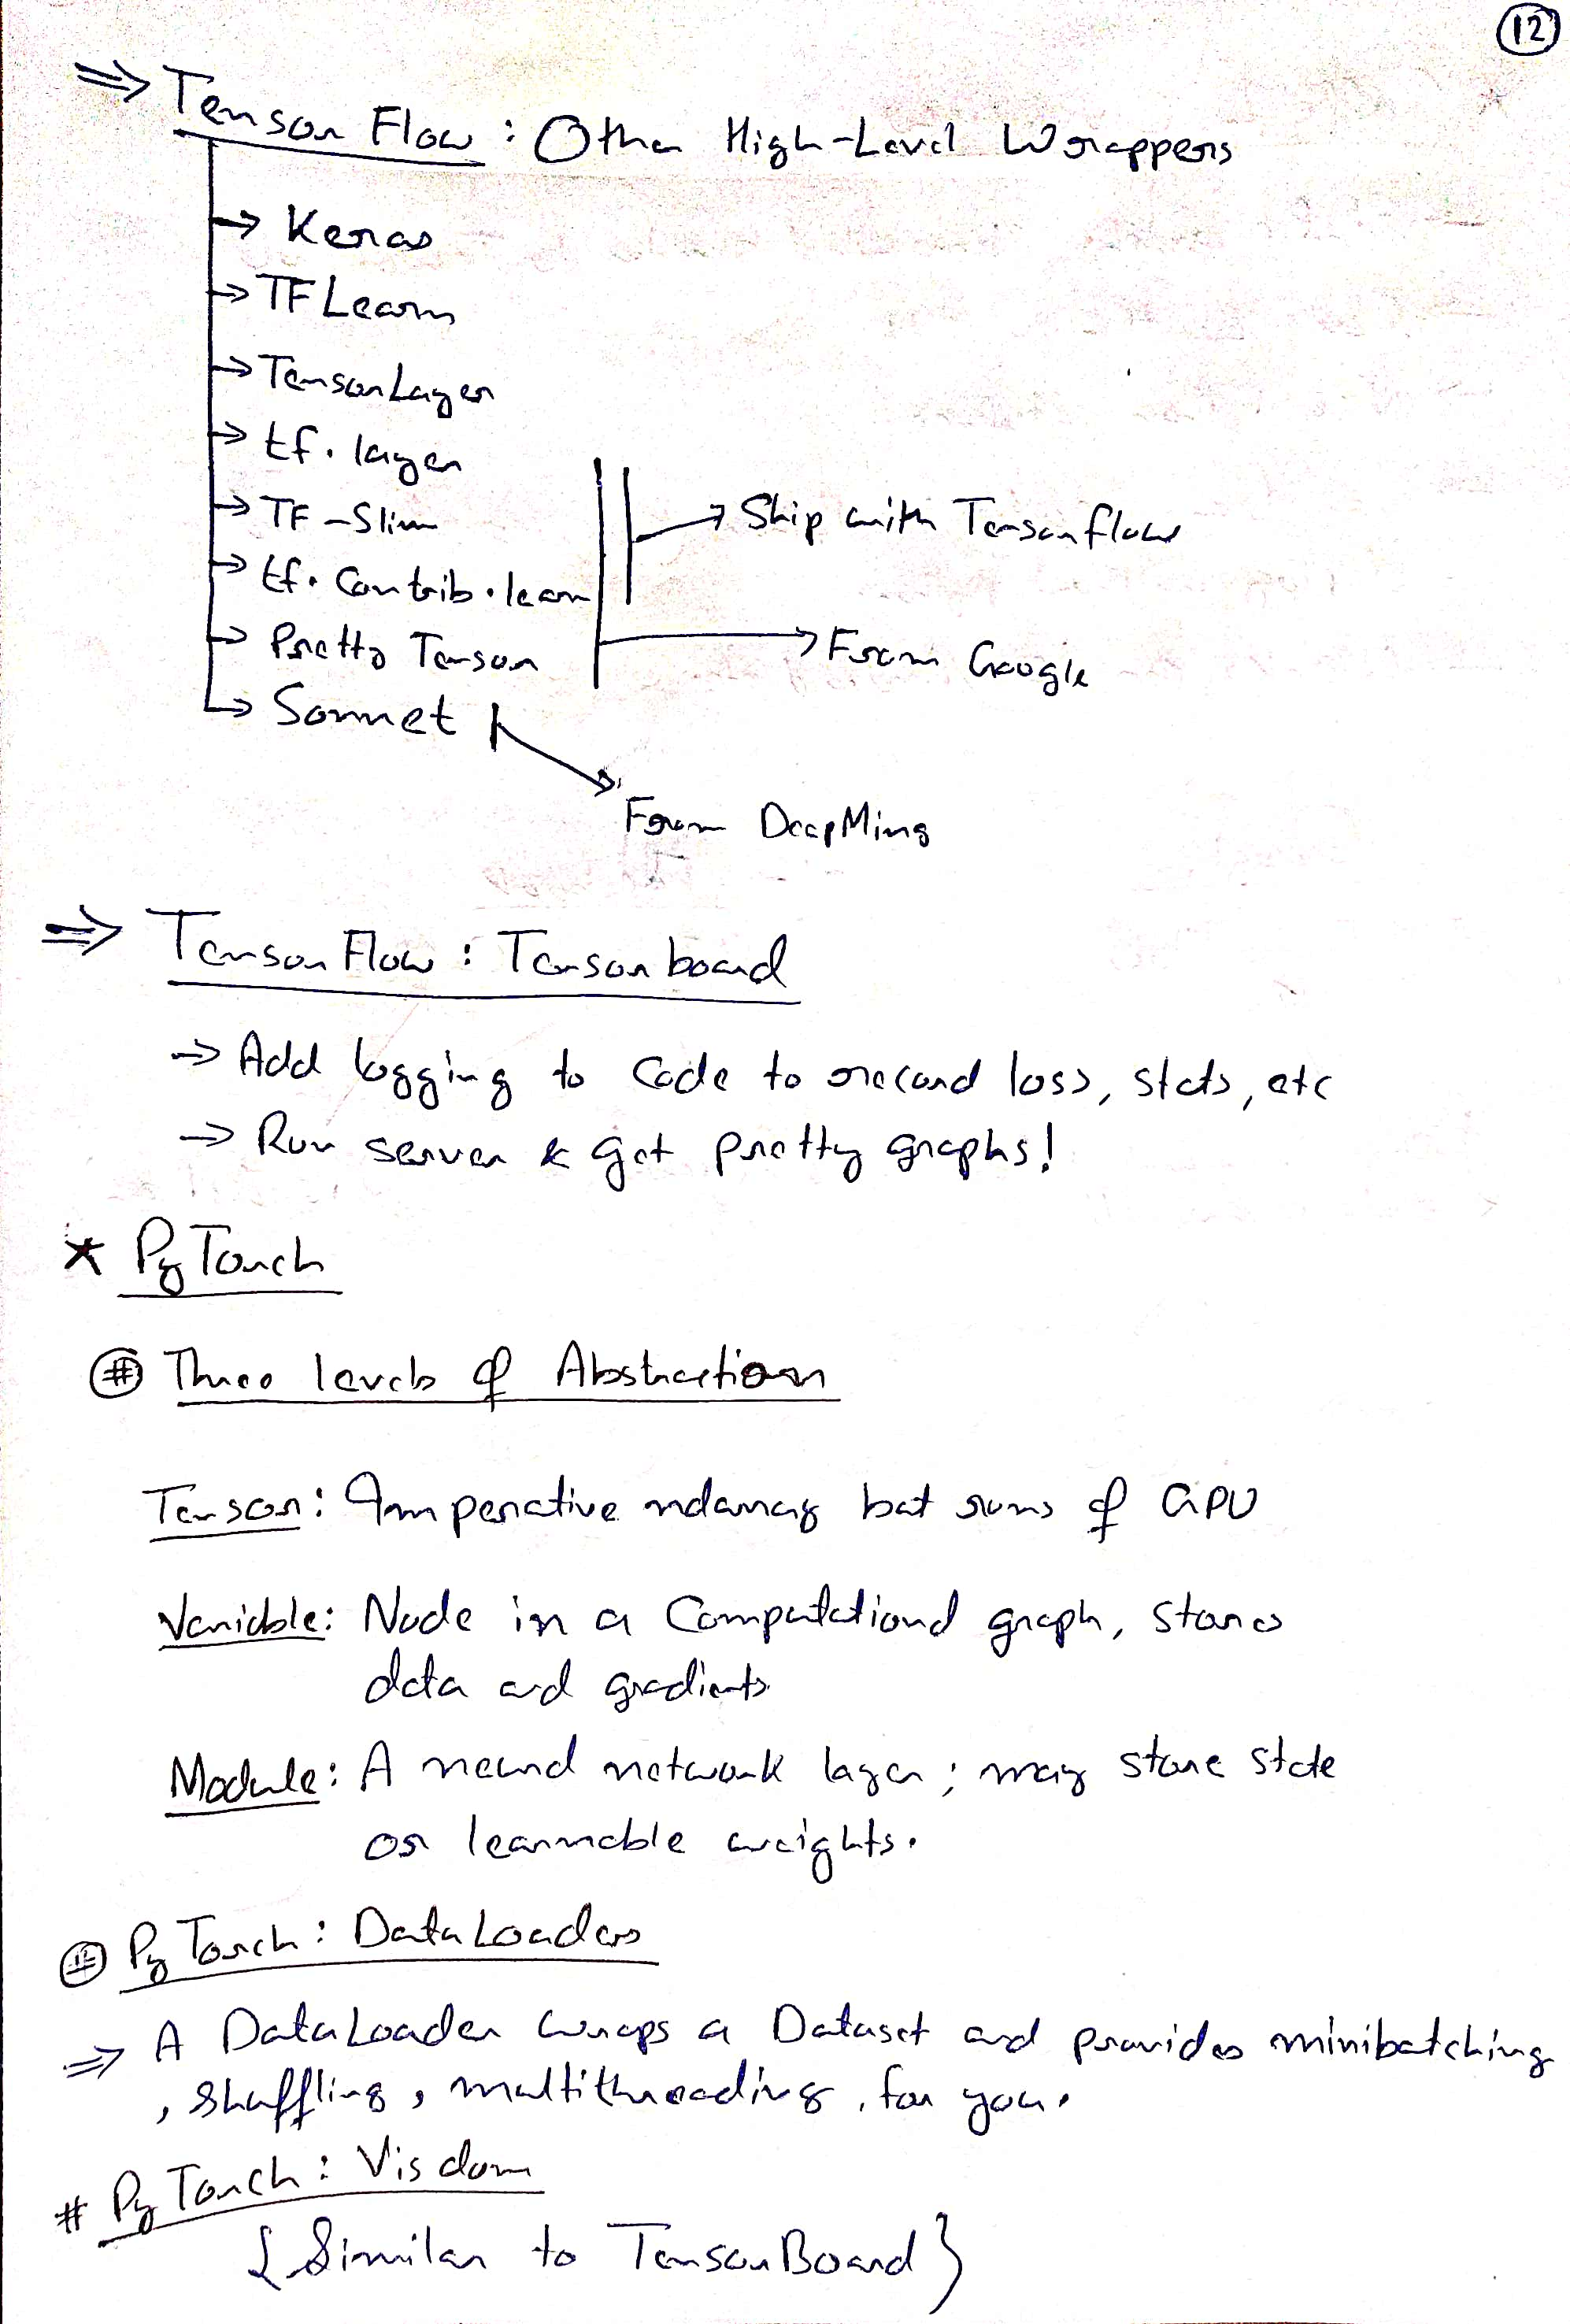 12
⇒ TensorFlow : Other High-Level Wrappers
→ Keras
→ TFLearn
→ TensorLayer
→ tf. layer
→ TF-Slim
→ Ship with Tensorflow
→ tf. Contrib. learn
→ Pretty Tensor
→ From Google
→ Sonnet
From DeepMing
⇒ TensorFlow : Tensorboard
→ Add logging to Code to record loss, stats, etc
→ Run server & get pretty graphs!
* PyTorch
# Three levels of Abstraction
Tensor: Imperative ndarray bat runs of GPU
Variable: Node in a Computational graph, stores
data and gradients
Module: A neural network layer; may store state
or learnable weights.
# PyTorch: DataLoaders
⇒ A DataLoader wraps a Dataset and provides minibatching
, shuffling, multithreading, for you.
# PyTorch: Visdom
{Similar to TensorBoard}